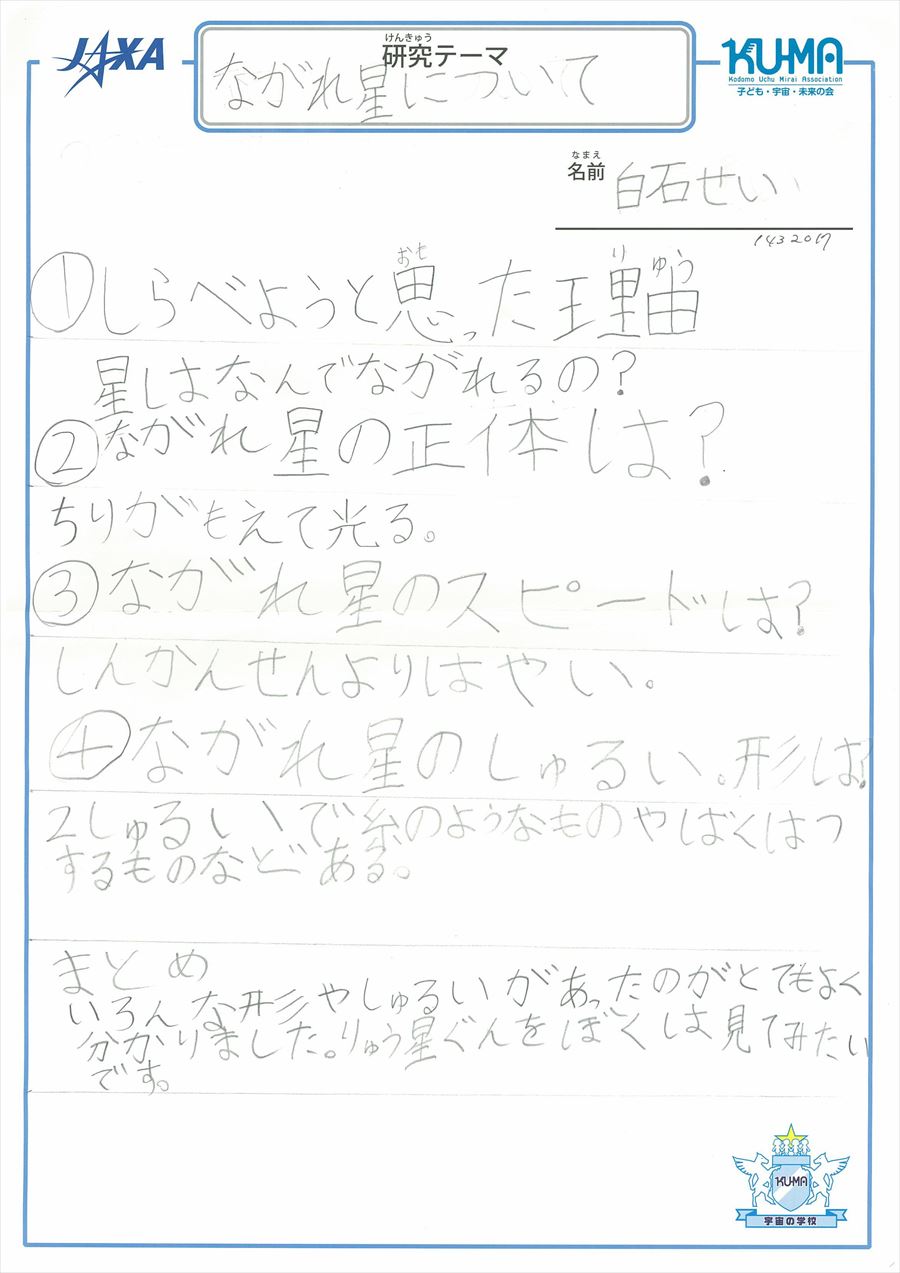 JAXA
けんきゅう
研究テーマ
ながれ星について
KU-MA
Kodomo Uchu Mirai Association
子ども・宇宙・未来の会
なまえ
名前 白石せい
1432017
おも り ゆう
①しらべようと思った理由
星はなんでながれるの?
②ながれ星の正体は?
ちりがもえて光る。
③ながれ星のスピードは?
しんかんせんよりはやい。
④ながれ星のしゅるい。形は?
2しゅるいで糸のようなものやばくはつ
するものなどある。
まとめ
いろんな形やしゅるいがあったのがとてもよく
分かりました。りゅう星ぐんをぼくは見てみたい
です。
KU-MA
宇宙の学校